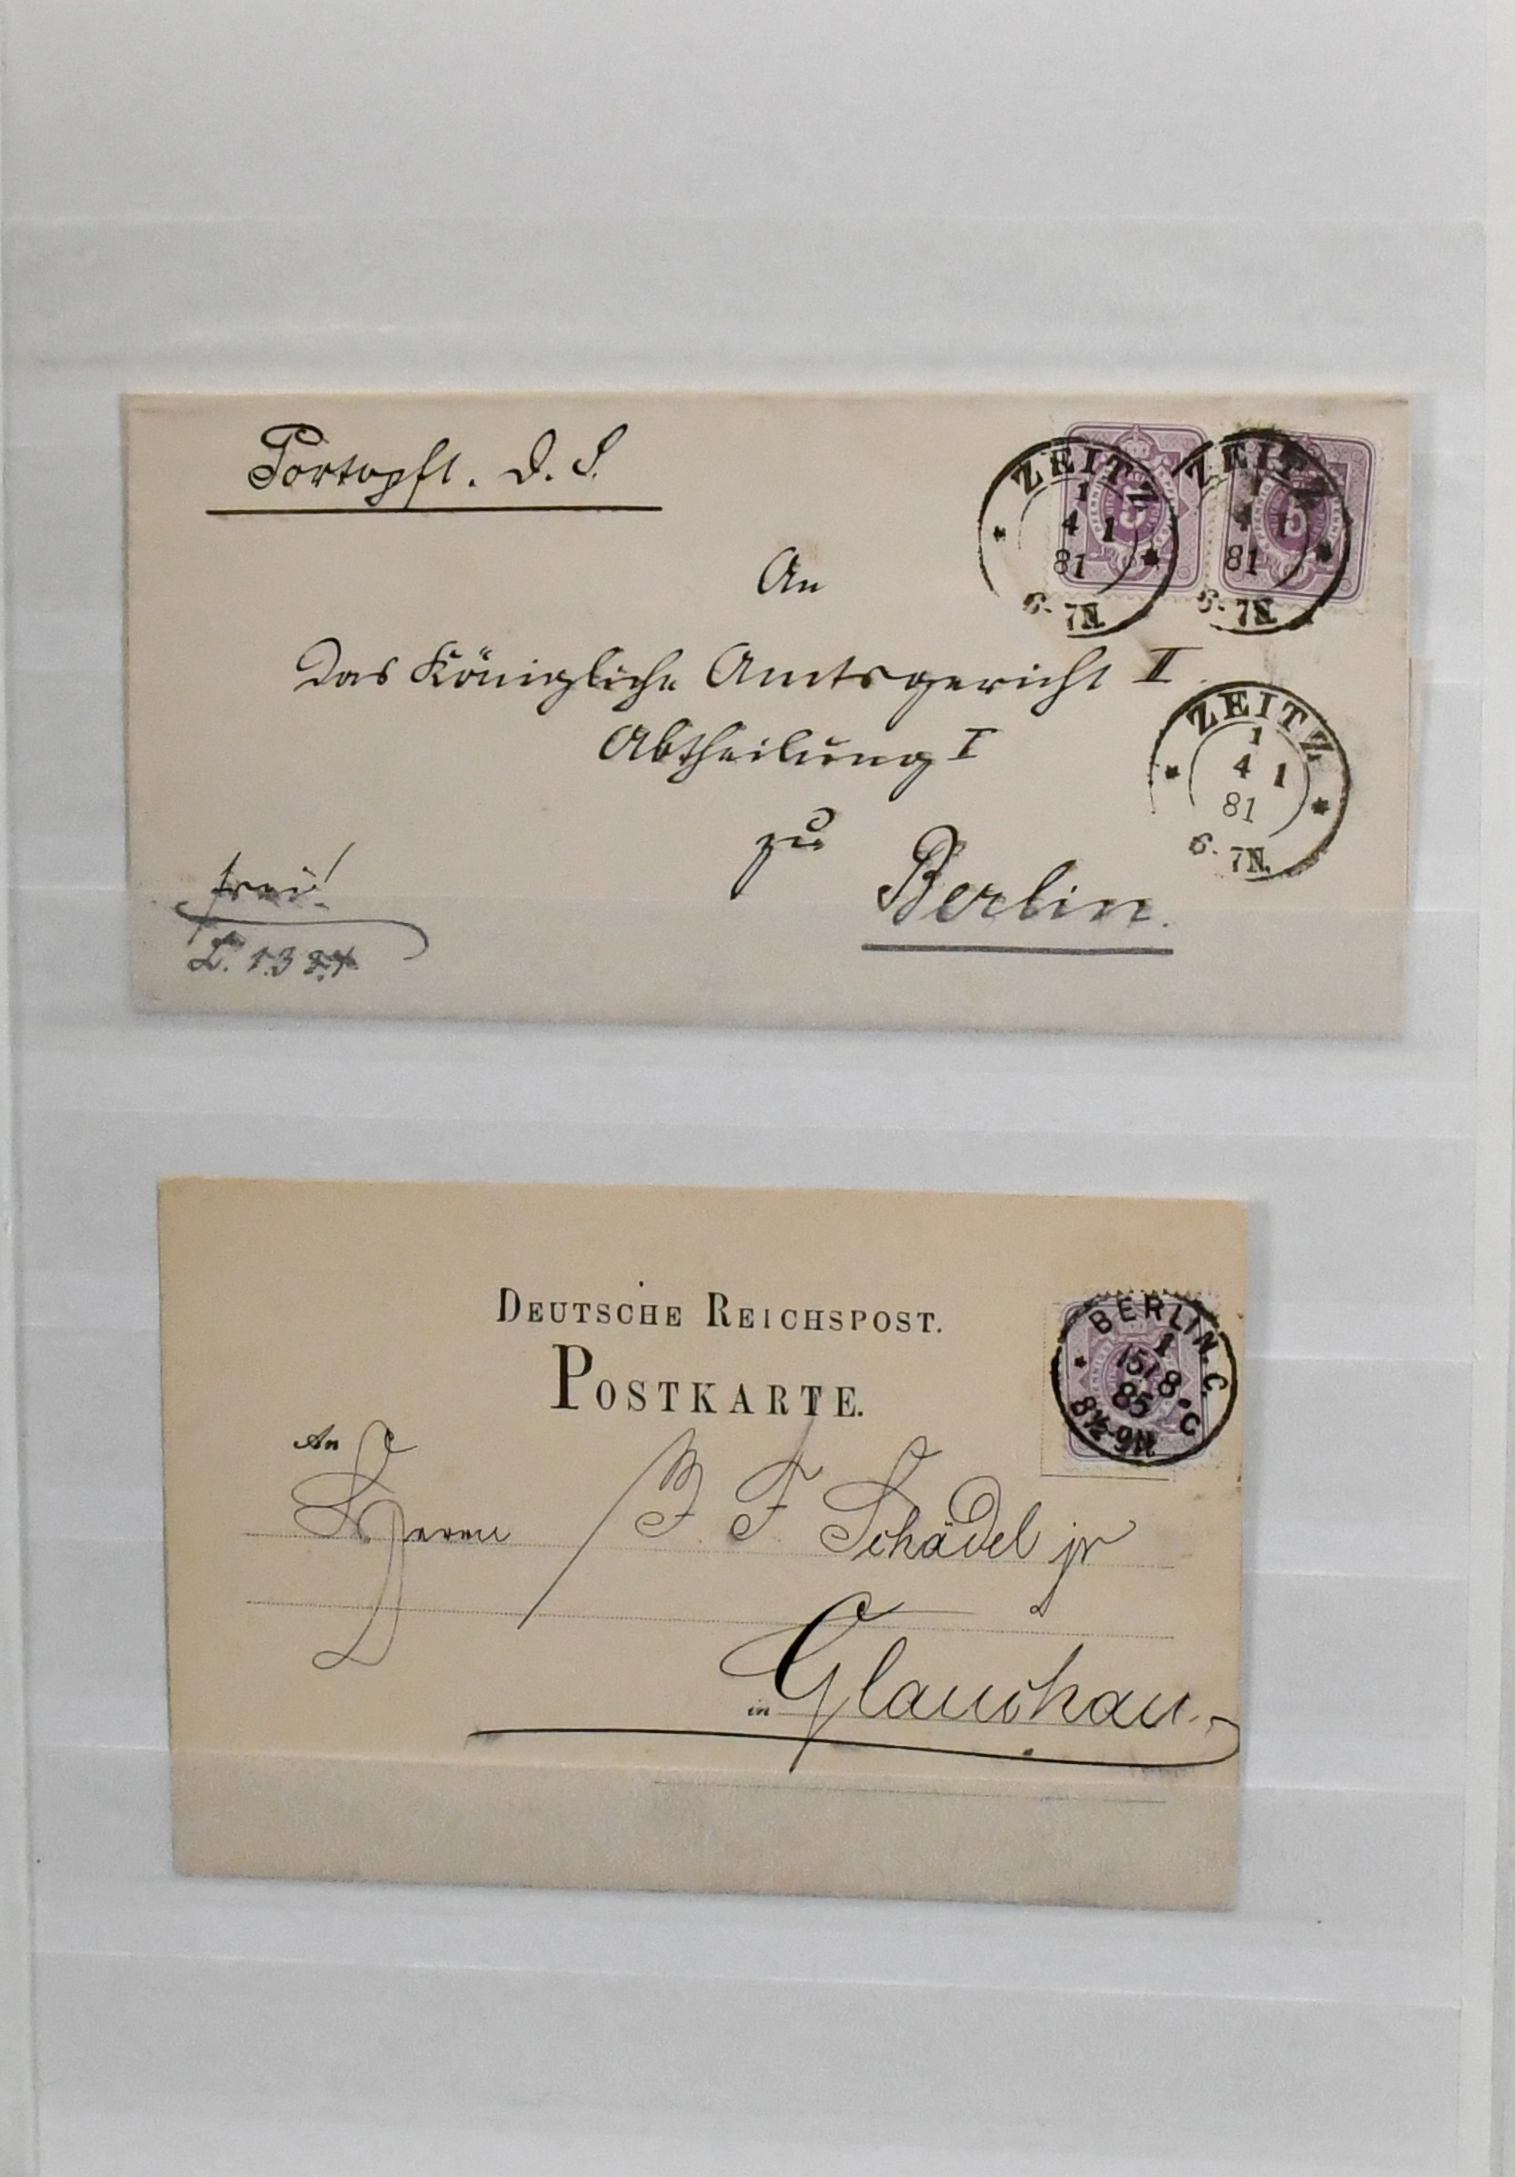 Portopfl. D. S.
ZEITZ
1
4 1
81
6-7N.
ZEITZ
4 1
81
6-7N.
5
5
An
Das Königliche Amtsgericht II.
Abtheilung I
zu
Berlin.
ZEITZ
1
4 1
81
6-7N.
frei!
DEUTSCHE REICHSPOST.
POSTKARTE.
BERLIN. C.
1
15 8
85
8½-9N
C
An
Herrn F. Schädel jr
in Glauchau.